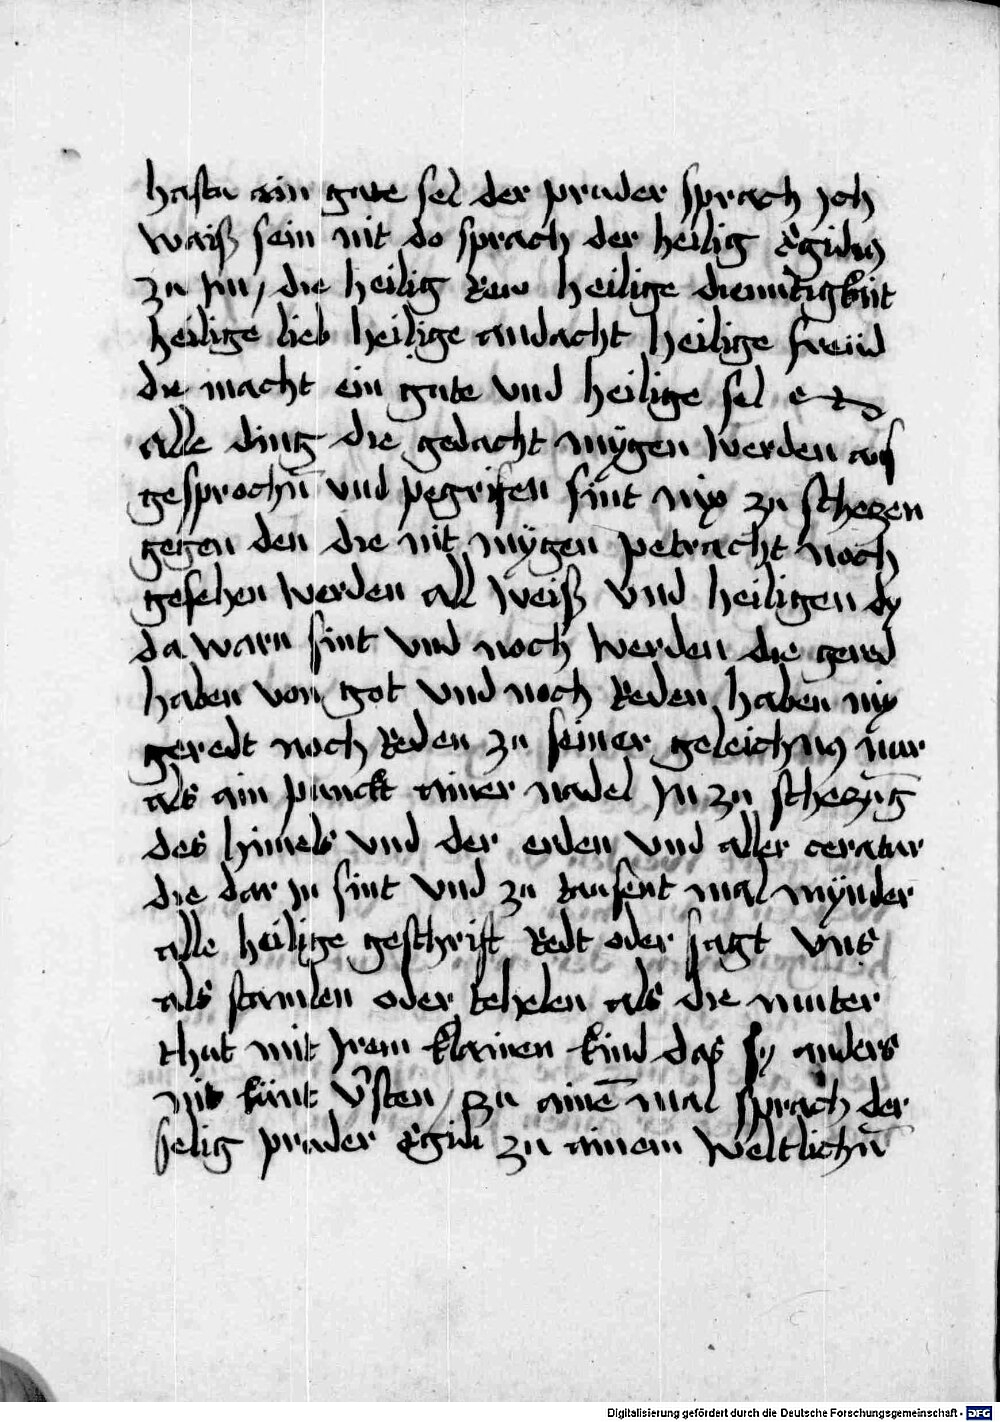 hastu ain gute sel der pruder sprach Jch
waiß sein nit do sprach der heilig Egidius
zu Jm / die heilig Rew heilige diemutigkait
heilige lieb heilige andacht heilige freüd
die macht ein gute vnd heilige sel
alle ding die gedacht mygen werden auf
gesprochn̄ vnd pegrifen sint nix zu scheczen
gegen den die nit mygen petracht noch
gesehen werden all weiß vnd heiligen dy
da warn sint vnd noch werden die gered
haben von got vnd noch Reden haben nix
geredt noch Reden zu seiner geleichnus nur
als ain punckt ainer nadel Jn zu scheczūg
des himels vnd der erden vnd aller ceratur
die dar Jn sint vnd zu tausent mal mynder
alle heilige geschrift Redt oder sagt vns
als stamlen oder tehelen als die muter
thut mit Jrem klainen kind das sy anders
nit künt v̄sten / zu ainē mal sprach der
selig pruder Egidi zu ainem weltlichn̄
Digitalisierung gefördert durch die Deutsche Forschungsgemeinschaft - DFG